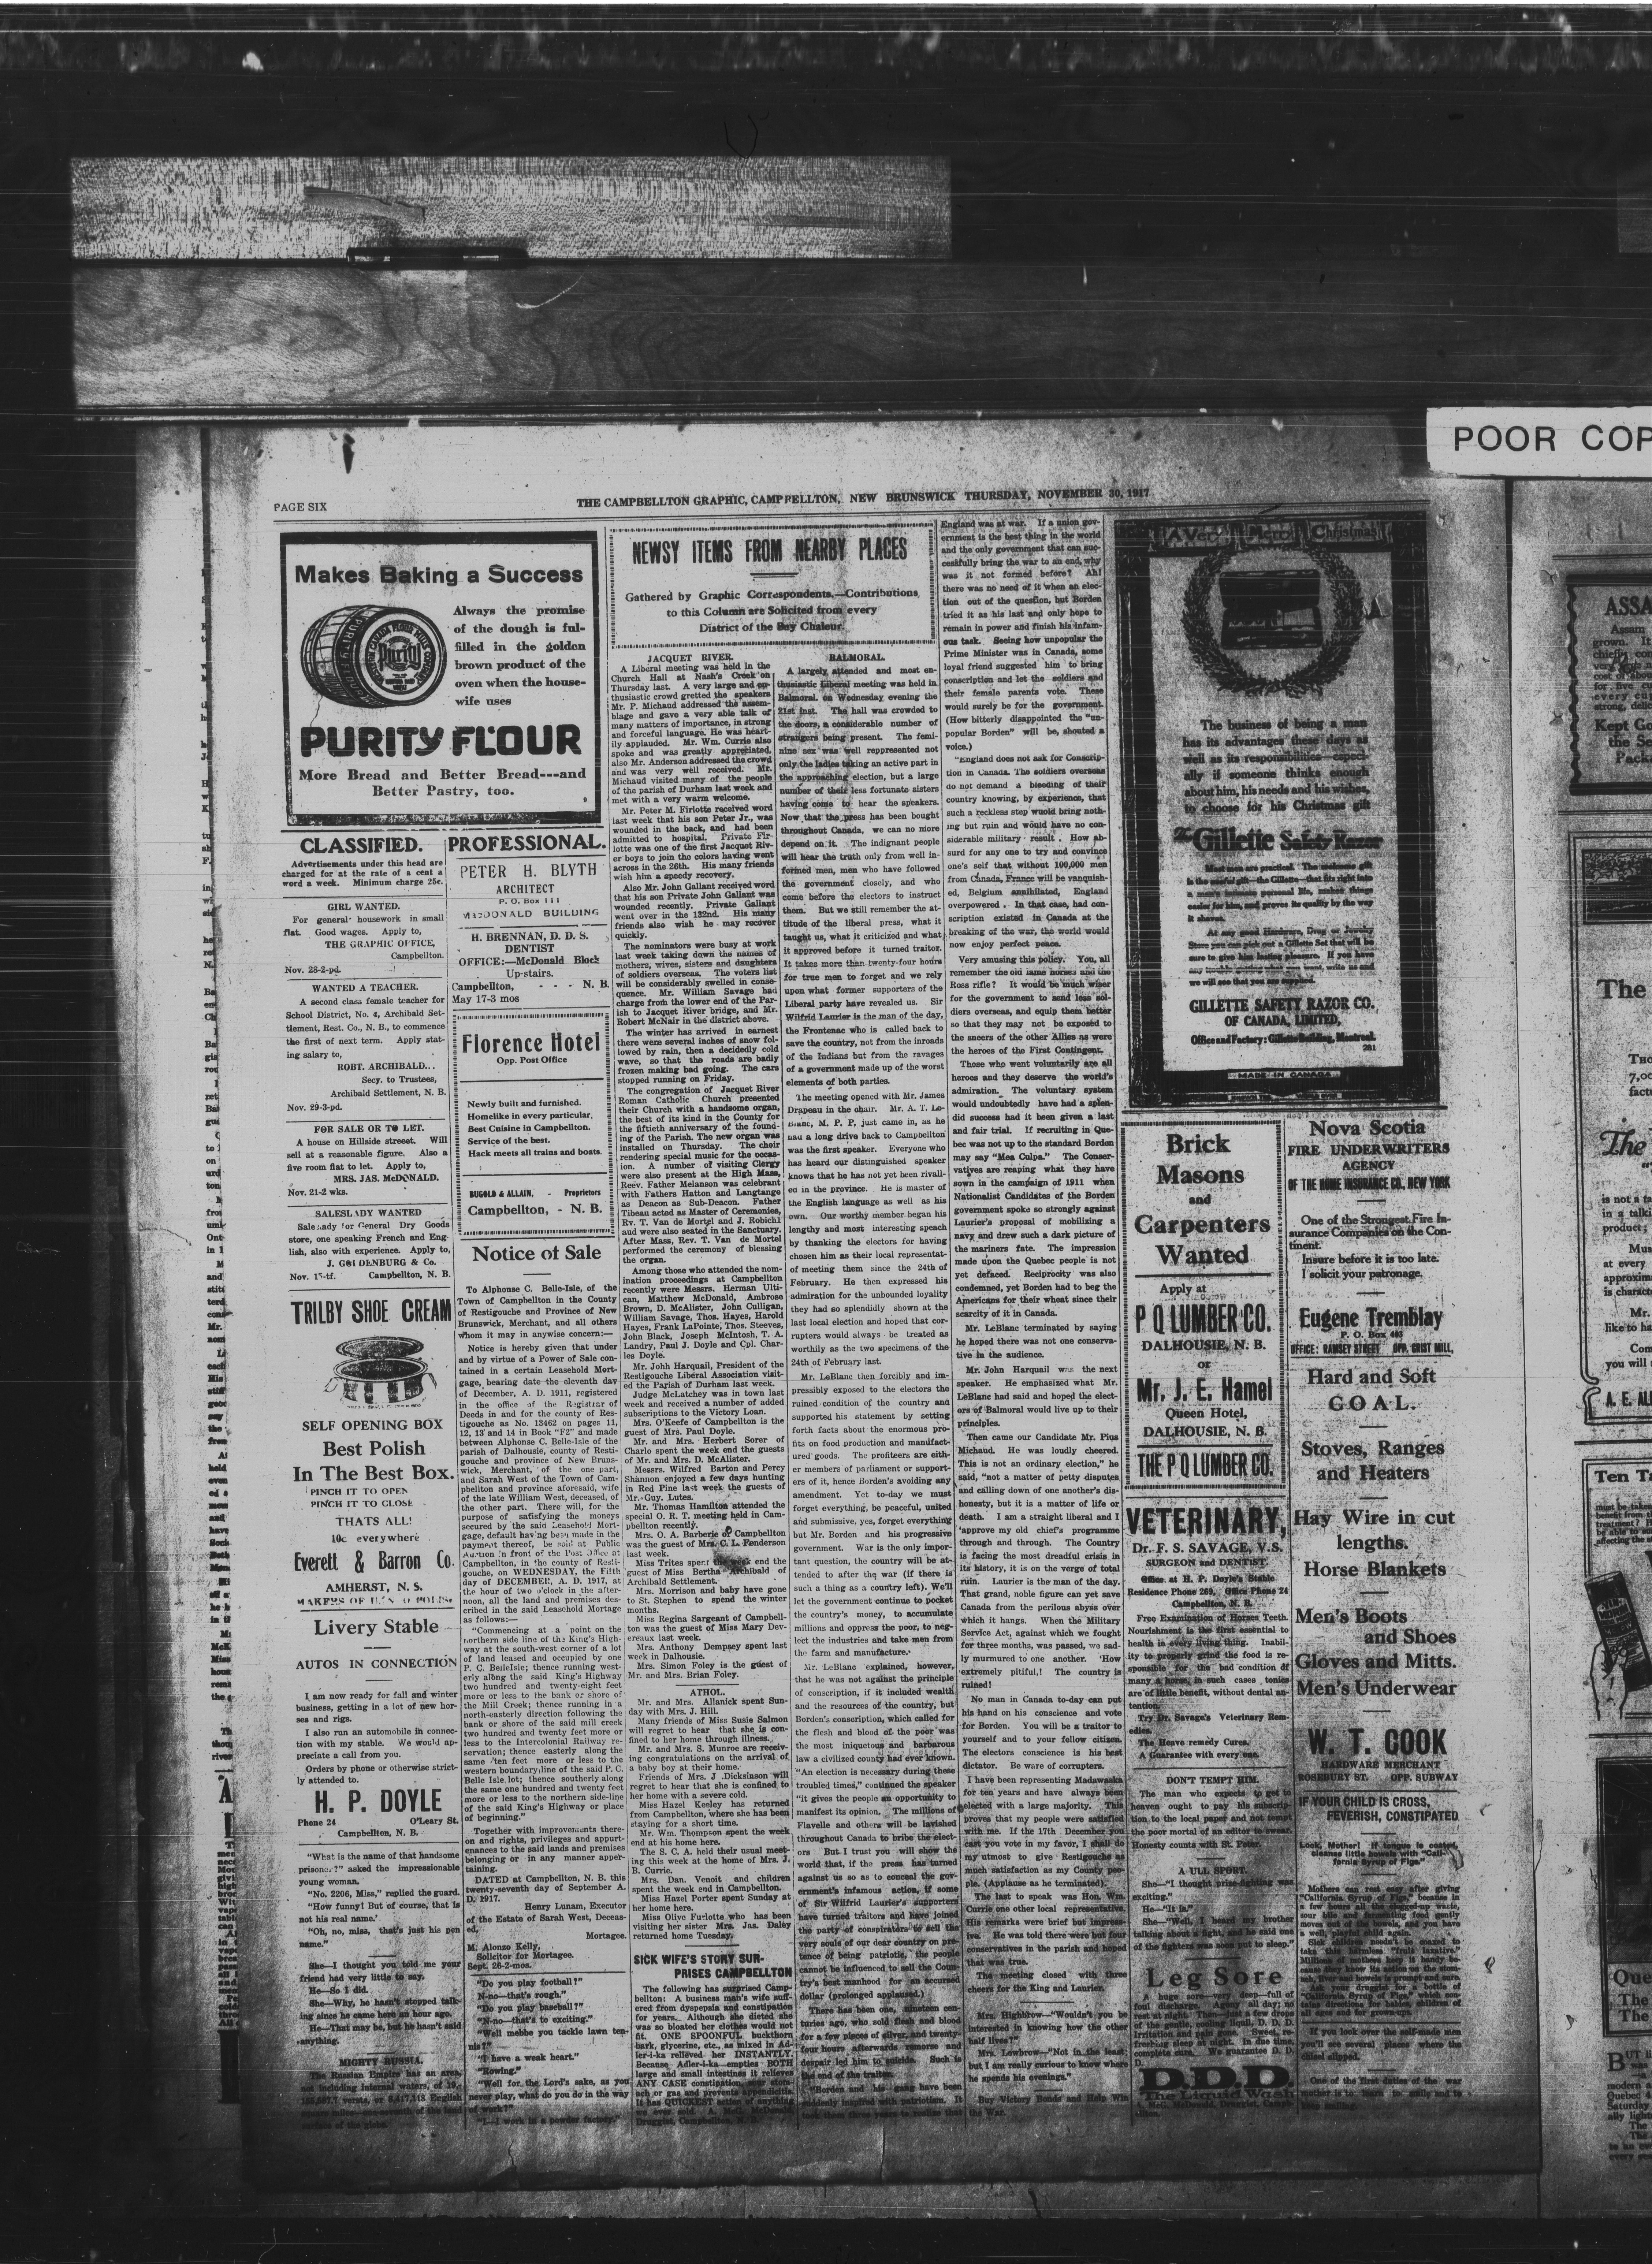 POOR COP
PAGE SIX
THE CAMPBELLTON GRAPHIC, CAMPFELLTON, NEW BRUNSWICK THURSDAY, NOVEMBER 30, 1917
Makes Baking a Success
Always the promise
of the dough is ful-
filled in the golden
brown product of the
oven when the house-
wife uses
PURITY FLOUR
More Bread and Better Bread---and
Better Pastry, too.
CLASSIFIED.
Advertisements under this head are
charged for at the rate of a cent a
word a week. Minimum charge 25c.
GIRL WANTED.
For general housework in small
flat. Good wages. Apply to,
THE GRAPHIC OFFICE,
Campbellton.
Nov. 28-2-pd.
WANTED A TEACHER.
A second class female teacher for
School District, No. 4, Archibald Set-
tlement, Rest. Co., N. B., to commence
the first of next term. Apply stat-
ing salary to,
ROBT. ARCHIBALD...
Secy. to Trustees,
Archibald Settlement, N. B.
Nov. 29-3-pd.
FOR SALE OR TO LET.
A house on Hillside streeet. Will
sell at a reasonable figure. Also a
five room flat to let. Apply to,
MRS. JAS. McDONALD.
Nov. 21-2 wks.
SALESLADY WANTED
Saleslady for General Dry Goods
store, one speaking French and Eng-
lish, also with experience. Apply to,
J. GOLDENBURG & Co.
Nov. 15-tf. Campbellton, N. B.
TRILBY SHOE CREAM
SELF OPENING BOX
Best Polish
In The Best Box.
PINCH IT TO OPEN
PINCH IT TO CLOSE
THATS ALL!
10c everywhere
Everett & Barron Co.
AMHERST, N. S.
Livery Stable
AUTOS IN CONNECTION
I am now ready for fall and winter
business, getting in a lot of new hor-
ses and rigs.
I also run an automobile in connec-
tion with my stable. We would ap-
preciate a call from you.
Orders by phone or otherwise strict-
ly attended to.
H. P. DOYLE
Phone 24 O'Leary St.
Campbellton, N. B.
"What is the name of that handsome
prisoner?" asked the impressionable
young woman.
"No. 2206, Miss," replied the guard.
"How funny! But of course, that is
not his real name.'
"Oh, no, miss, that's just his pen
name."
She—I thought you told me your
friend had very little to say.
He—So I did.
She—Why, he hasn't stopped talk-
ing since he came here an hour ago.
He—That may be, but he hasn't said
anything.
MIGHTY RUSSIA.
The Russian Empire has an area,
PROFESSIONAL.
PETER H. BLYTH
ARCHITECT
P. O. Box 111
McDONALD BUILDING
H. BRENNAN, D. D. S.
DENTIST
OFFICE:—McDonald Block
Up-stairs.
Campbellton, - - - N. B.
May 17-3 mos
Florence Hotel
Opp. Post Office
Newly built and furnished.
Homelike in every particular.
Best Cuisine in Campbellton.
Service of the best.
Hack meets all trains and boats.
BUGOLD & ALLAIN, - Proprietors
Campbellton, - N. B.
Notice of Sale
To Alphonse C. Belle-Isle, of the
Town of Campbellton in the County
of Restigouche and Province of New
Brunswick, Merchant, and all others
whom it may in anywise concern:—
Notice is hereby given that under
and by virtue of a Power of Sale con-
tained in a certain Leasehold Mort-
gage, bearing date the eleventh day
of December, A. D. 1911, registered
in the office of the Registrar of
Deeds in and for the county of Res-
tigouche as No. 13462 on pages 11,
12, 13 and 14 in Book "F2" and made
between Alphonse C. Belle-Isle of the
parish of Dalhousie, county of Resti-
gouche and province of New Bruns-
wick, Merchant, of the one part,
and Sarah West of the Town of Cam-
pbellton and province aforesaid, wife
of the late William West, deceased, of
the other part. There will, for the
purpose of satisfying the moneys
secured by the said Leasehold Mort-
gage, default having been made in the
payment thereof, be sold at Public
Auction in front of the Post Office at
Campbellton, in the county of Resti-
gouche, on WEDNESDAY, the Fifth
day of DECEMBER, A. D. 1917, at
the hour of two o'clock in the after-
noon, all the land and premises des-
cribed in the said Leasehold Mortage
as follows:—
"Commencing at a point on the
northern side line of the King's High-
way at the south-west corner of a lot
of land leased and occupied by one
P. C. BelleIsle; thence running west-
erly along the said King's Highway
two hundred and twenty-eight feet
more or less to the bank or shore of
the Mill Creek; thence running in a
north-easterly direction following the
bank or shore of the said mill creek
two hundred and twenty feet more or
less to the Intercolonial Railway re-
servation; thence easterly along the
same ten feet more or less to the
western boundary line of the said P. C.
Belle Isle lot; thence southerly along
the same one hundred and twenty feet
more or less to the northern side-line
of the said King's Highway or place
of beginning."
Together with improvements there-
on and rights, privileges and appurt-
enances to the said lands and premises
belonging or in any manner apper-
taining.
DATED at Campbellton, N. B. this
twenty-seventh day of September A.
D. 1917.
Henry Lunam, Executor
of the Estate of Sarah West, Deceas-
ed,
Mortagee.
M. Alonzo Kelly,
Solicitor for Mortagee.
Sept. 28-2-mos.
"Do you play football?"
N-no—that's rough."
"Do you play baseball?"
"N-no—that's to exciting."
"Well mebbe you tackle lawn ten-
nis?"
"I have a weak heart."
"Rowing."
"Well for the Lord's sake, as you
never play, what do you do in the way
of work?"
"I—I work in a powder factory."
NEWSY ITEMS FROM NEARBY PLACES
Gathered by Graphic Correspondents.—Contributions
to this Column are Solicited from every
District of the Bay Chaleur.
JACQUET RIVER.
A Liberal meeting was held in the
Church Hall at Nash's Creek on
Thursday last. A very large and en-
thusiastic crowd gretted the speakers
Mr. P. Michaud addressed the assem-
blage and gave a very able talk of
many matters of importance, in strong
and forceful language. He was heart-
ily applauded. Mr. Wm. Currie also
spoke and was greatly appreciated,
also Mr. Anderson addressed the crowd
and was very well received. Mr.
Michaud visited many of the people
of the parish of Durham last week and
met with a very warm welcome.
Mr. Peter M. Firlotte received word
last week that his son Peter Jr., was
wounded in the back, and had been
admitted to hospital. Private Fir-
lotte was one of the first Jacquet Riv-
er boys to join the colors having went
across in the 26th. His many friends
wish him a speedy recovery.
Also Mr. John Gallant received word
that his son Private John Gallant was
wounded recently. Private Gallant
went over in the 132nd. His many
friends also wish he may recover
quickly.
The nominators were busy at work
last week taking down the names of
mothers, wives, sisters and daughters
of soldiers overseas. The voters list
will be considerably swelled in conse-
quence. Mr. William Savage had
charge from the lower end of the Par-
ish to Jacquet River bridge, and Mr.
Robert McNair in the district above.
The winter has arrived in earnest
there were several inches of snow fol-
lowed by rain, then a decidedly cold
wave, so that the roads are badly
frozen making bad going. The cars
stopped running on Friday.
The congregation of Jacquet River
Roman Catholic Church presented
their Church with a handsome organ,
the best of its kind in the County for
the fiftieth anniversary of the found-
ing of the Parish. The new organ was
installed on Thursday. The choir
rendering special music for the occas-
ion. A number of visiting Clergy
were also present at the High Mass,
Reev. Father Melanson was celebrant
with Fathers Hatton and Langtange
as Deacon as Sub-Deacon. Father
Tibeau acted as Master of Ceremonies,
Rv. T. Van de Mortel and J. Robichi
aud were also seated in the Sanctuary.
After Mass, Rev. T. Van de Mortel
performed the ceremony of blessing
the organ.
Among those who attended the nom-
ination proceedings at Campbellton
recently were Messrs. Herman Ulti-
can, Matthew McDonald, Ambrose
Brown, D. McAlister, John Culligan,
William Savage, Thos. Hayes, Harold
Hayes, Frank LaPointe, Thos. Steeves,
John Black, Joseph McIntosh, T. A.
Landry, Paul J. Doyle and Cpl. Char-
les Doyle.
Mr. John Harquail, President of the
Restigouche Liberal Association visit-
ed the Parish of Durham last week.
Judge McLatchey was in town last
week and received a number of added
subscriptions to the Victory Loan.
Mrs. O'Keefe of Campbellton is the
guest of Mrs. Paul Doyle.
Mr. and Mrs. Herbert Sorer of
Charlo spent the week end the guests
of Mr. and Mrs. D. McAlister.
Messrs. Wilfred Barton and Percy
Shannon enjoyed a few days hunting
in Red Pine last week the guests of
Mr. Guy. Lutes.
Mr. Thomas Hamilton attended the
special O. R. T. meeting held in Cam-
pbellton recently.
Mrs. O. A. Barberie of Campbellton
was the guest of Mrs. C. L. Fenderson
last week.
Miss Trites spent the week end the
guest of Miss Bertha Archibald of
Archibald Settlement.
Mrs. Morrison and baby have gone
to St. Stephen to spend the winter
months.
Miss Regina Sargeant of Campbell-
ton was the guest of Miss Mary Dev-
ereaux last week.
Mrs. Anthony Dempsey spent last
week in Dalhousie.
Mrs. Simon Foley is the guest of
Mr. and Mrs. Brian Foley.
ATHOL.
Mr. and Mrs. Allanick spent Sun-
day with Mrs. J. Hill.
Many friends of Miss Susie Salmon
will regret to hear that she is con-
fined to her home through illness.
Mr. and Mrs. S. Munroe are receiv-
ing congratulations on the arrival of
a baby boy at their home.
Friends of Mrs. J. Dickinson will
regret to hear that she is confined to
her home with a severe cold.
Miss Hazel Keeley has returned
from Campbellton, where she has been
staying for a short time.
Mr. Wm. Thompson spent the week
end at his home here.
The S. C. A. held their usual meet-
ing this week at the home of Mrs. J.
B. Currie.
Mrs. Dan. Venoit and children
spent the week end in Campbellton.
Miss Hazel Porter spent Sunday at
her home here.
Miss Olive Furlotte who has been
visiting her sister Mrs. Jas. Daley
returned home Tuesday.
SICK WIFE'S STORY SUR-
PRISES CAMPBELLTON
The following has surprised Camp-
bellton: A business man's wife suff-
ered from dyspepsia and constipation
for years. Although she dieted she
was so bloated her clothes would not
fit. ONE SPOONFUL buckthorn
bark, glycerine, etc., as mixed in Ad-
ler-i-ka relieved her INSTANTLY.
Because Adler-i-ka empties BOTH
large and small intestines it relieves
ANY CASE constipation, sour stom-
ach or gas and prevents appendicitis.
It has QUICKEST action of anything
BALMORAL.
A largely attended and most en-
thusiastic Liberal meeting was held in
Balmoral, on Wednesday evening the
21st inst. The hall was crowded to
the doors, a considerable number of
strangers being present. The femi-
nine sex was well reppresented not
only the ladies taking an active part in
the approaching election, but a large
number of their less fortunate sisters
having come to hear the speakers.
Now that the press has been bought
throughout Canada, we can no more
depend on it. The indignant people
will hear the truth only from well in-
formed men, men who have followed
the government closely, and who
come before the electors to instruct
them. But we still remember the at-
titude of the liberal press, what it
taught us, what it criticized and what
it approved before it turned traitor.
It takes more than twenty-four hours
for true men to forget and we rely
upon what former supporters of the
Liberal party have revealed us. Sir
Wilfrid Laurier is the man of the day,
the Frontenac who is called back to
save the country, not from the inroads
of the Indians but from the ravages
of a government made up of the worst
elements of both parties.
The meeting opened with Mr. James
Drapeau in the chair. Mr. A. T. Le-
Blanc, M. P. P. just came in, as he
had a long drive back to Campbellton
was the first speaker. Everyone who
has heard our distinguished speaker
knows that he has not yet been rivall-
ed in the province. He is master of
the English language as well as his
own. Our worthy member began his
lengthy and most interesting speach
by thanking the electors for having
chosen him as their local representat-
of meeting them since the 24th of
February. He then expressed his
admiration for the unbounded loyality
they had so splendidly shown at the
last local election and hoped that cor-
rupters would always be treated as
worthily as the two specimens of the
24th of February last.
Mr. LeBlanc then forcibly and im-
pressibly exposed to the electors the
ruined condition of the country and
supported his statement by setting
forth facts about the enormous pro-
fits on food production and manufact-
ured goods. The profiteers are eith-
er members of parliament or support-
ers of it, hence Borden's avoiding any
amendment. Yet to-day we must
forget everything, be peaceful, united
and submissive, yes, forget everything
but Mr. Borden and his progressive
government. War is the only impor-
tant question, the country will be at-
tended to after the war (if there is
such a thing as a country left). We'll
let the government continue to pocket
the country's money, to accumulate
millions and oppress the poor, to neg-
lect the industries and take men from
the farm and manufacture.
Mr. LeBlanc explained, however,
that he was not against the principle
of conscription, if it included wealth
and the resources of the country, but
Borden's conscription, which called for
the flesh and blood of the poor was
the most iniquetous and barbarous
law a civilized county had ever known.
"An election is necessary during these
troubled times," continued the speaker
"it gives the people an opportunity to
manifest its opinion. The millions of
Flavelle and others will be lavished
throughout Canada to bribe the elect-
ors But I trust you will show the
world that, if the press has turned
against us so as to conceal the gov-
ernment's infamous action, if some
of Sir Wilfrid Laurier's supporters
have turned traitors and have joined
the party of conspirators to sell the
very souls of our dear country on pre-
tence of being patriotic, the people
cannot be influenced to sell the Coun-
try's best manhood for an accursed
dollar (prolonged applause.)
There has been one, nineteen cen-
turies ago, who sold flesh and blood
for a few pieces of silver, and twenty-
four hours afterwards remorse and
despair led him to suicide. Such is
the end of the traitor.
"Borden and his gang have been
suddenly inspired with patriotism. It
England was at war. If a union gov-
ernment is the best thing in the world
and the only government that can suc-
cessfully bring the war to an end, why
was it not formed before? Ah!
there was no need of it when an elec-
tion out of the question, but Borden
tried it as his last and only hope to
remain in power and finish his infam-
ous task. Seeing how unpopular the
Prime Minister was in Canada, some
loyal friend suggested him to bring
conscription and let the soldiers and
their female parents vote. These
would surely be for the government.
(How bitterly disappointed the "un-
popular Borden" will be, shouted a
voice.)
"England does not ask for Conscrip-
tion in Canada. The soldiers overseas
do not demand a bleeding of their
country knowing, by experience, that
such a reckless step wuold bring noth-
ing but ruin and would have no con-
siderable military result. How ab-
surd for any one to try and convince
one's self that without 100,000 men
from Canada, France will be vanquish-
ed, Belgium annihilated, England
overpowered. In that case, had con-
scription existed in Canada at the
breaking of the war, the world would
now enjoy perfect peace.
Very amusing this policy. You, all
remember the old lame horses and the
Ross rifle? It would be much wiser
for the government to send less sol-
diers overseas, and equip them better
so that they may not be exposed to
the sneers of the other Allies as were
the heroes of the First Contingent.
Those who went voluntarily are all
heroes and they deserve the world's
admiration. The voluntary system
would undoubtedly have had a splen-
did success had it been given a last
and fair trial. If recruiting in Que-
bec was not up to the standard Borden
may say "Mea Culpa." The Conser-
vatives are reaping what they have
sown in the campaign of 1911 when
Nationalist Candidates of the Borden
government spoke so strongly against
Laurier's proposal of mobilizing a
navy and drew such a dark picture of
the mariners fate. The impression
made upon the Quebec people is not
yet defaced. Reciprocity was also
condemned, yet Borden had to beg the
Americans for their wheat since their
scarcity of it in Canada.
Mr. LeBlanc terminated by saying
he hoped there was not one conserva-
tive in the audience.
Mr. John Harquail was the next
speaker. He emphasized what Mr.
LeBlanc had said and hoped the elect-
ors of Balmoral would live up to their
principles.
Then came our Candidate Mr. Pius
Michaud. He was loudly cheered.
This is not an ordinary election," he
said, "not a matter of petty disputes
and calling down of one another's dis-
honesty, but it is a matter of life or
death. I am a straight liberal and I
'approve my old chief's programme
through and through. The Country
is facing the most dreadful crisis in
its history, it is on the verge of total
ruin. Laurier is the man of the day.
That grand, noble figure can yet save
Canada from the perilous abyss over
which it hangs. When the Military
Service Act, against which we fought
for three months, was passed, we sad-
ly murmured to one another. 'How
extremely pitiful,! The country is
ruined!
No man in Canada to-day can put
his hand on his conscience and vote
for Borden. You will be a traitor to
yourself and to your fellow citizen.
The electors conscience is his best
dictator. Be ware of corrupters.
I have been representing Madawaska
for ten years and have always been
elected with a large majority. This
proves that my people were satisfied
with me. If the 17th December you
cast you vote in my favor, I shall do
my utmost to give Restigouche as
much satisfaction as my County peo-
ple. (Applause as he terminated).
The last to speak was Hon. Wm.
Currie one other local representative.
His remarks were brief but impress-
ive. He was told there were but four
conservatives in the parish and hoped
that was true.
The meeting closed with three
cheers for the King and Laurier.
Mrs. Highbrow—"Wouldn't you be
interested in knowing how the other
half lives?"
Mrs. Lowbrow—"Not in the least;
but I am really curious to know where
he spends his evenings."
Buy Victory Bonds and Help Win
the War.
A Very Merry Christmas
The business of being a man
has its advantages these days as
well as its responsibilities—especi-
ally if someone thinks enough
about him, his needs and his wishes,
to choose for his Christmas gift
The Gillette Safety Razor
Most men are practical. The welcome gift
is the useful gift—the Gillette—that fits right into
a man's intimate personal life, makes things
easier for him, and proves its quality by the way
it shaves.
At any good Hardware, Drug or Jewelry
Store you can pick out a Gillette Set that will be
sure to give him lasting pleasure. If you have
any trouble getting what you want, write us and
we will see that you are supplied.
GILLETTE SAFETY RAZOR CO.
OF CANADA, LIMITED,
Office and Factory: Gillette Building, Montreal.
281
MADE IN CANADA
Brick
Masons
and
Carpenters
Wanted
Apply at
P Q LUMBER CO.
DALHOUSIE, N. B.
or
Mr. J. E. Hamel
Queen Hotel,
DALHOUSIE, N. B.
THE P Q LUMBER CO.
VETERINARY,
Dr. F. S. SAVAGE, V.S.
SURGEON and DENTIST.
Office at H. P. Doyle's Stable
Residence Phone 269, Office Phone 24
Campbellton, N. B.
Free Examination of Horses Teeth.
Nourishment is the first essential to
health in every living thing. Inabil-
ity to properly grind the food is re-
sponsible for the bad condition of
many a horse, in such cases tonics
are of little benefit, without dental at-
tention.
Try Dr. Savage's Veterinary Rem-
edies.
The Heave remedy Cures.
A Guarantee with every one.
DON'T TEMPT HIM.
The man who expects to get to
heaven ought to pay his subscrip-
tion to the local paper and not tempt
the poor mortal of an editor to swear.
Honesty counts with St. Peter.
A ULL SPORT.
She—"I thought prize-fighting was
exciting."
He—"It is."
She—"Well, I heard my brother
talking about a fight, and he said one
of the fighters was soon put to sleep."
Leg Sore
A huge sore—very deep—full of
foul discharge. Agony all day; no
rest at night. Then—just a few drops
of the gentle, cooling liquid, D. D. D.
Irritation and pain gone. Sweet, re-
freshing sleep at night. In due time,
complete cure. We guarantee D. D.
D.
D.D.D.
The Liquid Wash
Nova Scotia
FIRE UNDERWRITERS
AGENCY
OF THE HOME INSURANCE CO., NEW YORK
One of the Strongest Fire In-
surance Companies on the Con-
tinent.
Insure before it is too late.
I solicit your patronage.
Eugene Tremblay
P. O. Box 403
OFFICE: RAMSEY STREET OPP. GRIST MILL,
Hard and Soft
GOAL.
Stoves, Ranges
and Heaters
Hay Wire in cut
lengths.
Horse Blankets
Men's Boots
and Shoes
Gloves and Mitts.
Men's Underwear
W. T. COOK
HARDWARE MERCHANT
ROSEBURY ST. OPP. SUBWAY
IF YOUR CHILD IS CROSS,
FEVERISH, CONSTIPATED
Look, Mother! If tongue is coated,
cleanse little bowels with "Cali-
fornia Syrup of Figs."
Mothers can rest easy after giving
"California Syrup of Figs," because in
a few hours all the clogged-up waste,
sour bile and fermenting food gently
moves out of the bowels, and you have
a well, playful child again.
Sick children needn't be coaxed to
take this harmless "fruit laxative."
Millions of mothers keep it handy be-
cause they know its action on the stom-
ach, liver and bowels is prompt and sure.
Ask your druggist for a bottle of
"California Syrup of Figs," which con-
tains directions for babies, children of
all ages and for grown-ups.
If you look over the self-made men
you'll see several places where the
chisel slipped.
One of the first duties of the war
mother is to learn to smile and to